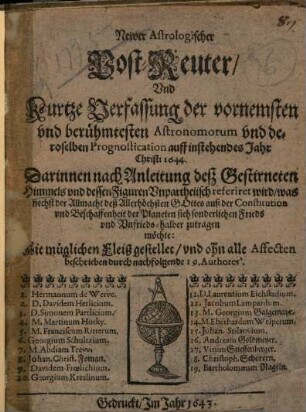 Newer Astrologischer
Post-Reuter/
Vnd
Kurtze Verfassung der vornemsten
vnd berühmtesten Astronomorum vnd de-
roselben Prognostication auff instehendes Jahr
Christi 1644.
Darinnen nach Anleitung deß Gestirneten
Himmels vnd dessen Figuren Vnpartheiisch referiret wird/was
nechst der Allmacht deß Allerhöchsten GOttes auß der Constitution
vnd Beschaffenheit der Planeten sich sonderlichen Frieds
vnd Vnfrieds-halber zutragen
möchte:
Mit müglichen Fleiß gestellet/vnd ohn alle Affecten
beschrieben durch nachfolgende 19. Authores.
1. Hermannum de Werve.
2. D. Davidem Herlicium.
3. D. Simonem Partlicium.
4. M. Martinum Horky.
5. M. Franciscum Ritterum.
6. Georgium Schultzium.
7. M. Abdiam Trew.
8. Johan. Christ.
9. Davidem Frœlichium.
10. Georgium Kreslinum.
11. D. Laurentium Eichstadium.
12. Jacobum Lamparch m.
13. M. Georgium Galgemayr.
14. M. Eberhardum Welperum.
15. Johan.
16. Andream Goldmeyer.
17.
18. Christoph. Scherern.
19. Bartholomæum Nageln.
Gedruckt/Im Jahr 1643.